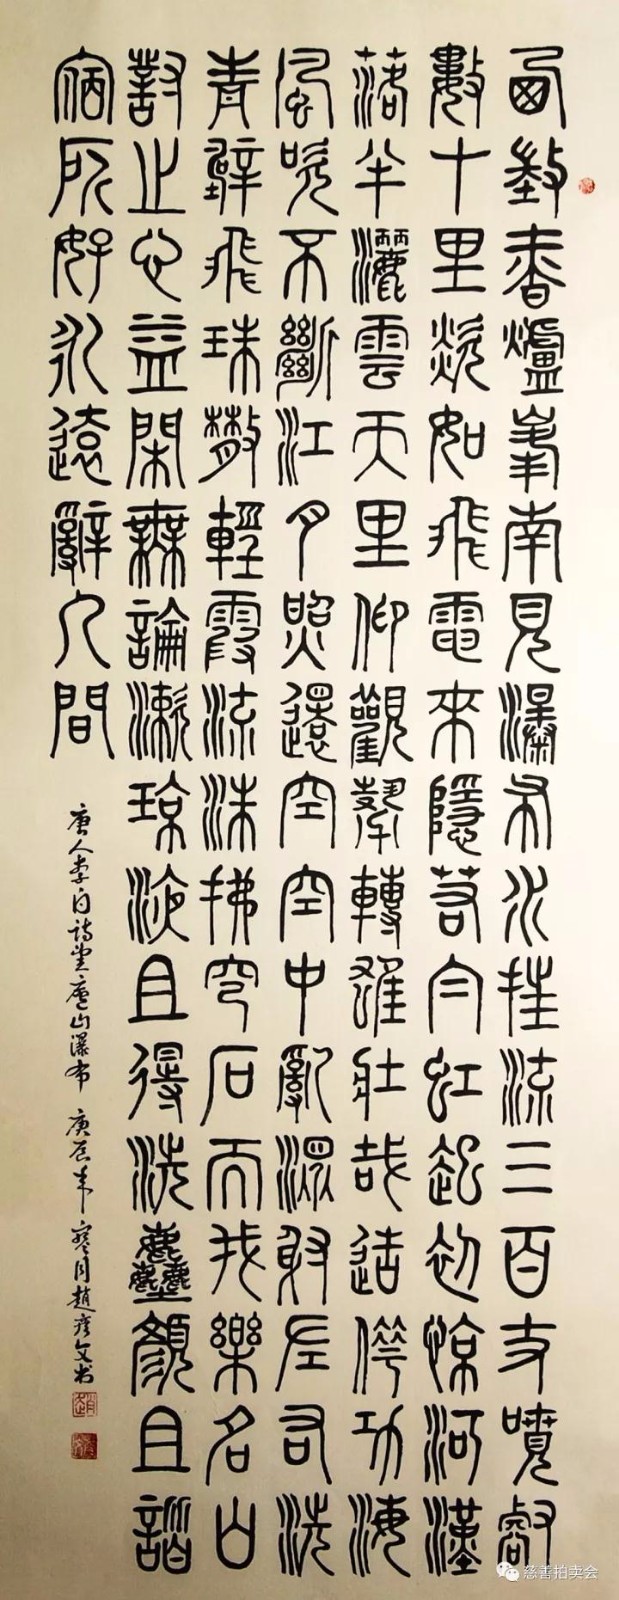 西登香爐峯南見瀑布水挂流三百丈噴壑
數十里欻如飛電來隱若白虹起初惊河漢
落半灑雲天里仰觀勢轉雄壯哉造化功海
風吹不斷江月照還空空中亂潈射左右洗
青壁飛珠散輕霞流沫拂穹石而我樂名山
對之心益閑無論漱琼液且得洗塵顏且諧
宿所好永遠辭人間
唐人李白詩望廬山瀑布 庚辰年 寒月趙文书
慈善拍卖会